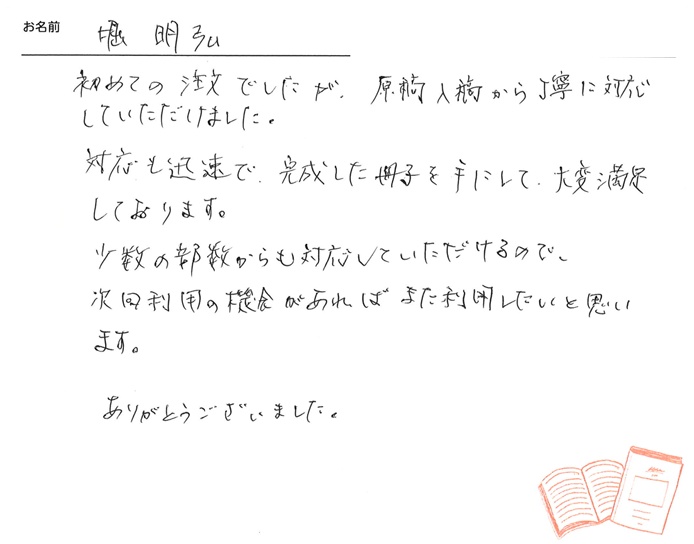 お名前 堀 明弘
初めての注文でしたが、原稿入稿から丁寧に対応
していただけました。
対応も迅速で、完成した冊子を手にして、大変満足
しております。
少数の部数からも対応していただけるので、
次回利用の機会があればまた利用したいと思い
ます。
ありがとうございました。